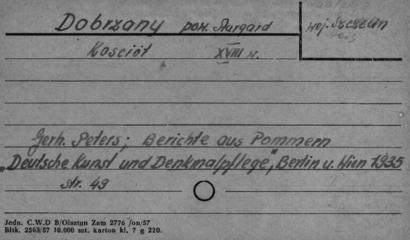 Dobrzany pow. Stargard
woj. Szczecin
Kościół XVIII w.
Gerh. Peters; Berichte aus Pommern
"Deutsche Kunst und Denkmalpflege", Berlin u. Wien 1935
str. 49
Jedn. C.W.D B/Olsztyn Zam 2776 /on/57
Bltk. 2563/57 10.000 szt. karton kl. 7 g 220.